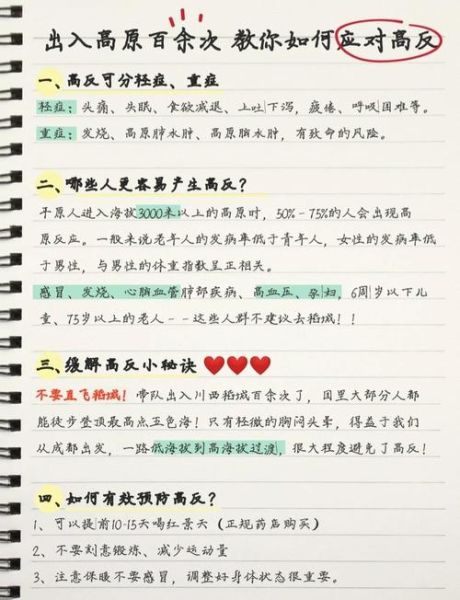 出入高原百余次 教你如何应对高反
一、高反可分轻症、重症
轻症：头痛、头眠、食欲减退、上吐下泻，疲倦、呼吸困难等。
重症：发烧、高原肺水肿、高原脑水肿，有致命的风险。
二、哪些人更容易产生高反？
平原人进入海拔3000米以上的高原时，50%-75%的人会出现高
原反应。一般来说老年人的发病率低于青年人，女性的发病率低
于男性，与男性的体重指数呈正相关。
感冒、发烧、心脑血管肺部疾病、高血压、孕妇，6周岁以下儿
童、75岁以上的老人--这些人群不建议去稻城！！
三、缓解高反小秘诀
不要直飞稻城！带队出入川西稻城百余次了，团里大部分人都
能徒步登顶最高点五色海！只有轻微的胸闷头晕，得益于我们
从成都出发，一路低海拔到高海拔过渡，很大程度避免了高反！
四、如何有效预防高反？
1、可以提前10-15天喝红景天（正规药店购买）
2、不要刻意锻炼、减少运动量
3、注意保暖不要感冒，调整好身体状态很重要。